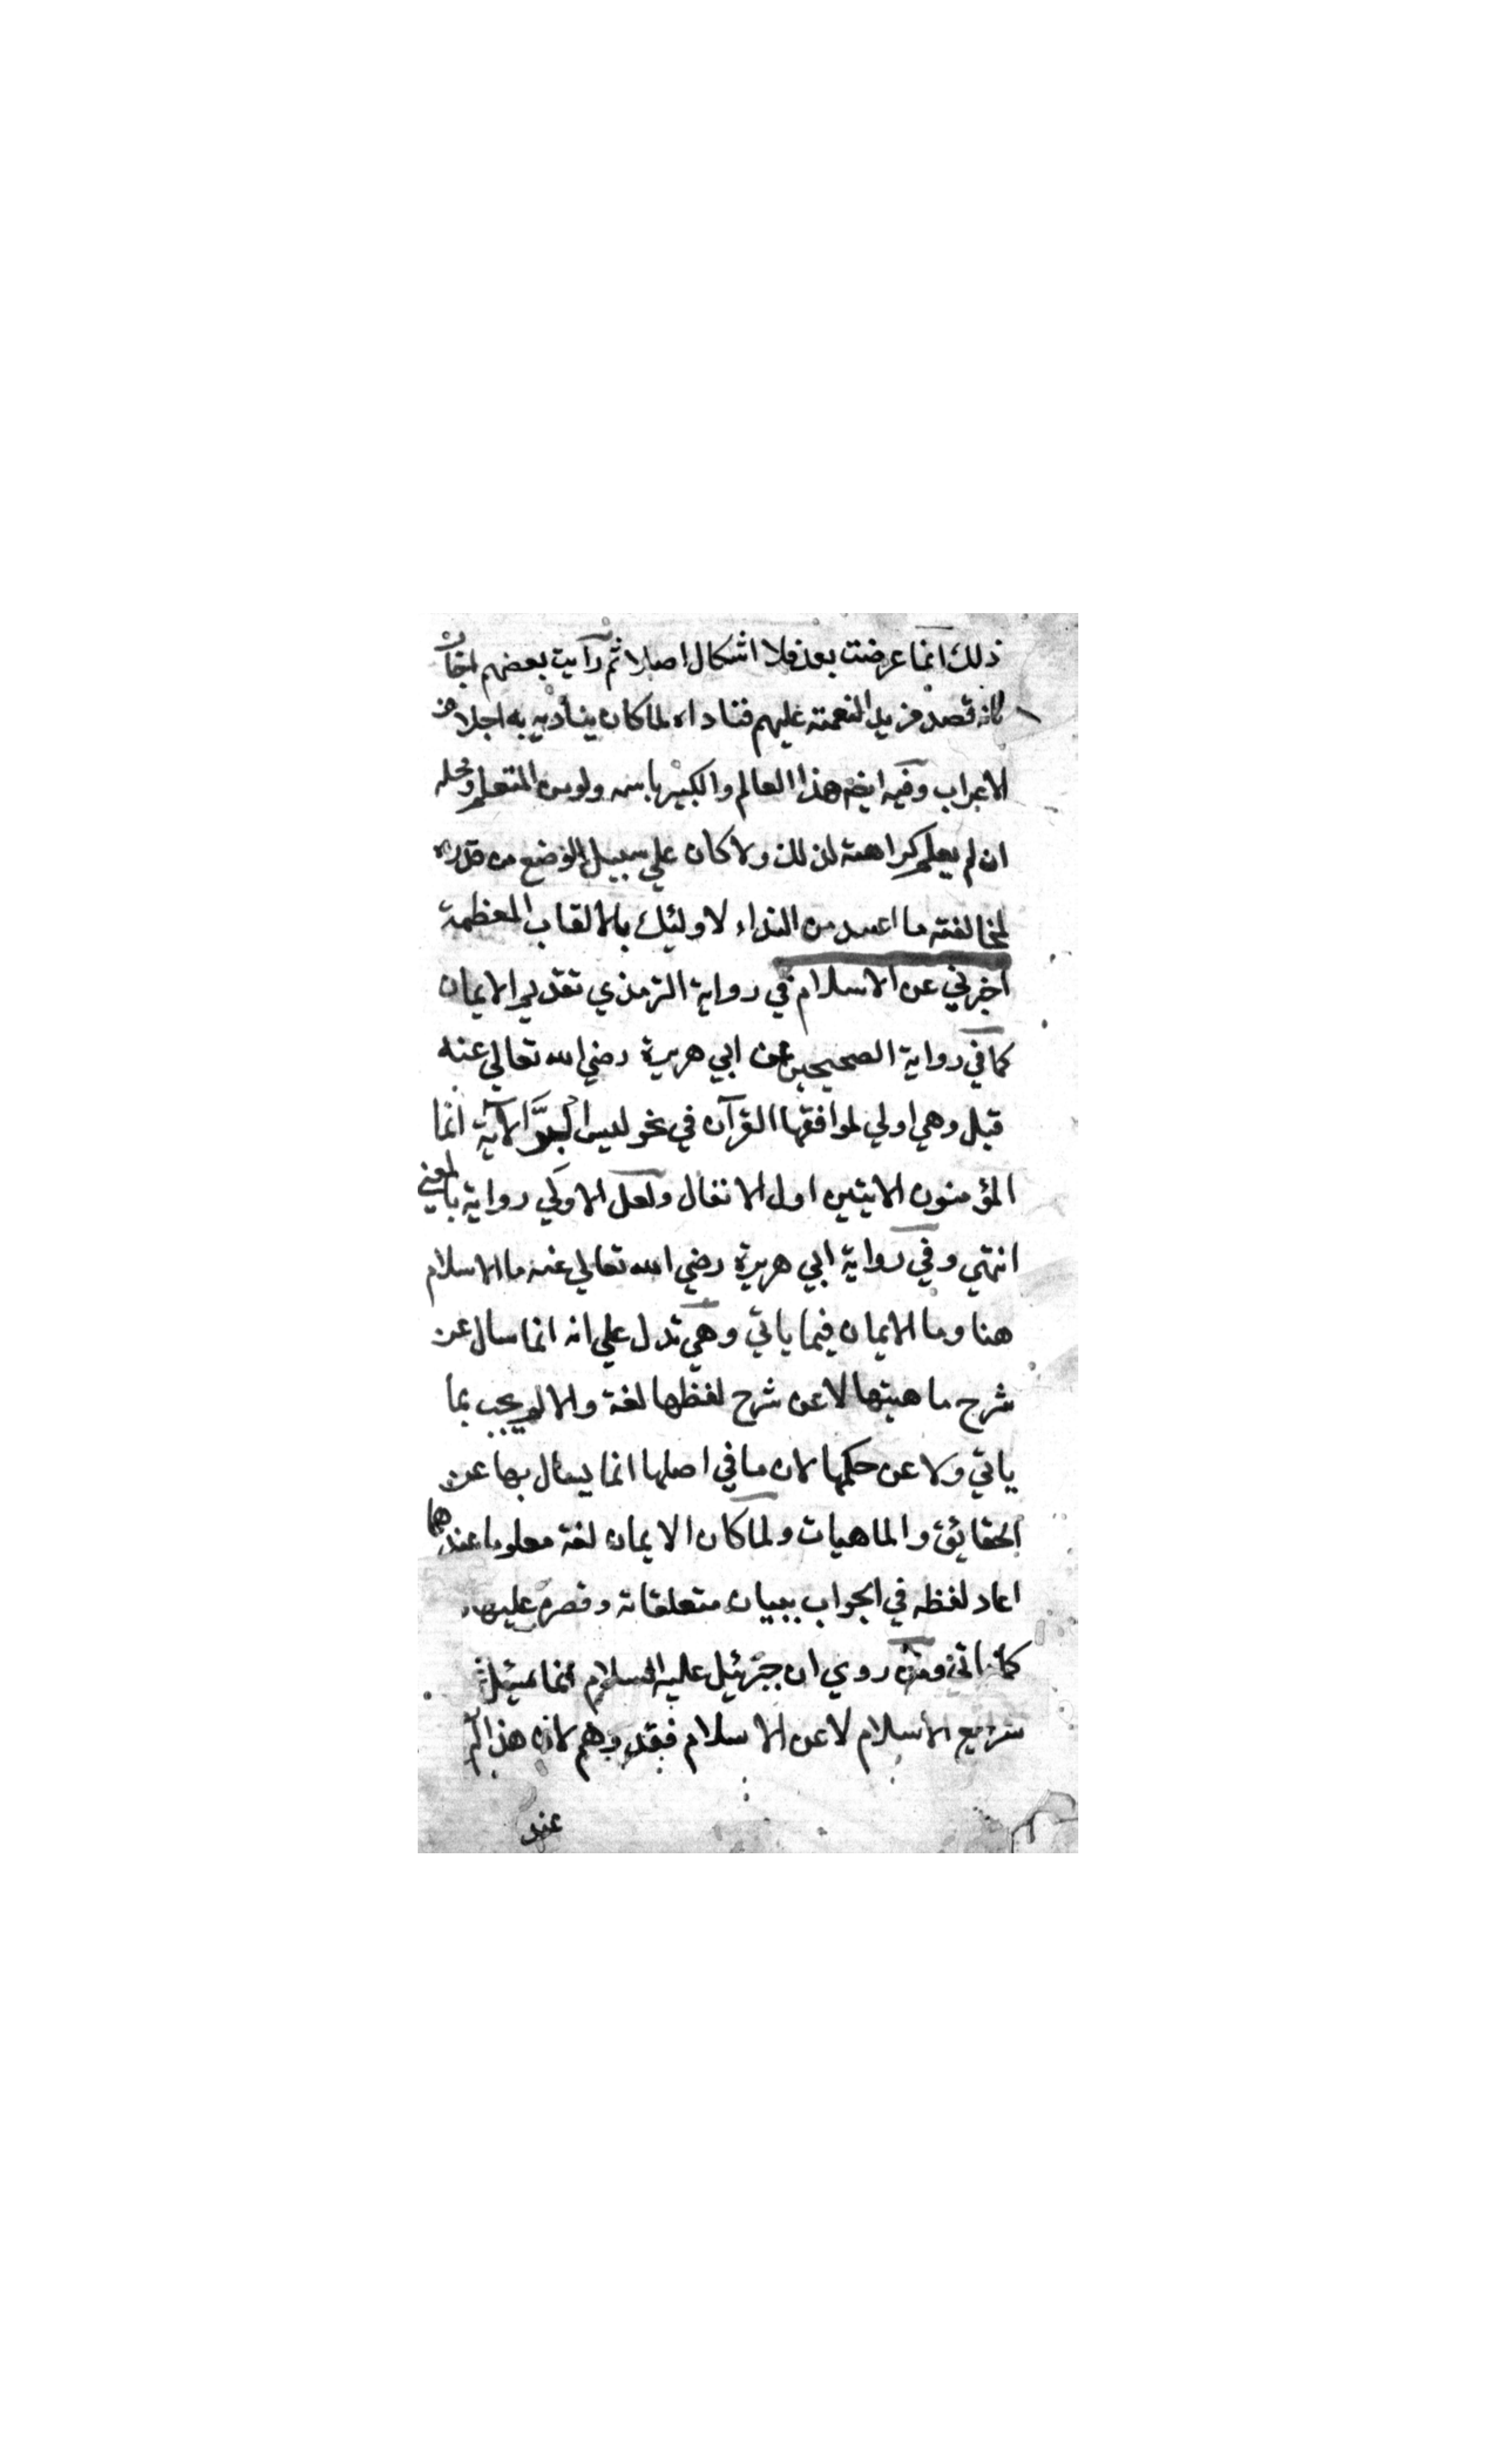 ذلك انما عرضت بعد فلا اشكال اصلا ثم رايت بعضهم اجاب
بانه قصد مزيد التعمية عليهم فناداه بما كان يناديه به اجلاف
الاعراب وفيه ايضا هذا العالم والكبير باسمه ولو من المتعلم ومحله
ان لم يعلم كراهته لذلك ولا كان علي سبيل الوضع من قدره
لمخالفته ما اعتيد من النداء لاوليك بالالقاب المعظمة
اخبرني عن الاسلام في رواية الترمذي تقديم الايمان
كما في رواية الصحيحين عن ابي هريرة رضي الله تعالي عنه
قيل وهي اولي لموافقتها القرآن في نحو ليس البرَّ الآية انما
المؤمنون الايتين اول الانفال ولعل الاولي رواية بالمعني
انتهي وفي رواية ابي هريرة رضي الله تعالي عنه ما الاسلام
هنا وما الايمان فيما ياتي وهي تدل علي انه انما سال عن
شرح ماهيتها لا عن شرح لفظها لغة والا لم يجب بما
ياتي ولا عن حكمها لان ما في اصلها انما يسال بها عن
الحقايق والماهيات ولما كان الايمان لغة معلوما عندهما
اعاد لفظه في الجواب ببيان متعلقاته وقصره عليها
كما ياتي ومن روي ان جبرئيل عليه السلام انما سئل عن
شرايع الاسلام لا عن الاسلام فقد وهم لان هذا لم
عند